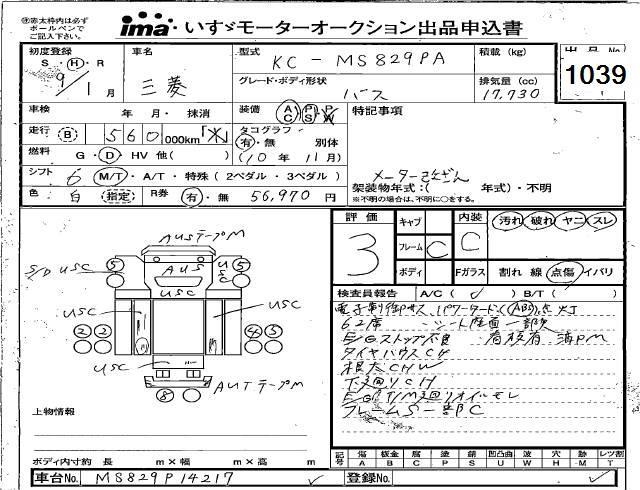 ㊟赤太枠内は必ず
ボールペンで
ご記入下さい。
ima® いすゞモーターオークション出品申込書
初度登録 S・H・R 9/1月
車名 三菱
型式 KC-MS829PA
積載 (kg)
出品No. 1039
グレード・ボディ形状 バス
排気量 (cc) 17,730
車検 年 月・抹消
装備 AC PS PW
特記事項
走行 B 560 000km「不」
タコグラフ 有・無 別体
燃料 G・D・HV 他( )
(10年11月)
シフト 6 M/T・A/T・特殊(2ペダル・3ペダル)
メーター
架装物年式:( 年式)・不明
※不明の場合は、不明に○をする。
色: 白 指定
R券 有・無 56,970円
評価 3
キャブ
フレーム C
ボディ
内装 C
Fガラス
汚れ 破れ ヤニ スレ
割れ 線 点傷 イバリ
AUSテープM
S/D USC
AUS
USC
USC
USC
USC
AUTテープM
検査員報告 A/C(✓) B/T( )
電子制御サス パワーモード (ABS)点灯
62席 シート座面一部破
E/Gストップ不良
タイヤハウスCH
根太CHW
下廻りCH
E/G T/M廻りオイルモレ
フレームS一部C
上物情報
ボディ内寸約 長 m×幅 m×高 m
記号 傷A 板金B 腐C 塗P 錆S 凹凸曲U W 穴H 跡M レツ割T
車台No. MS829P14217
登録No.